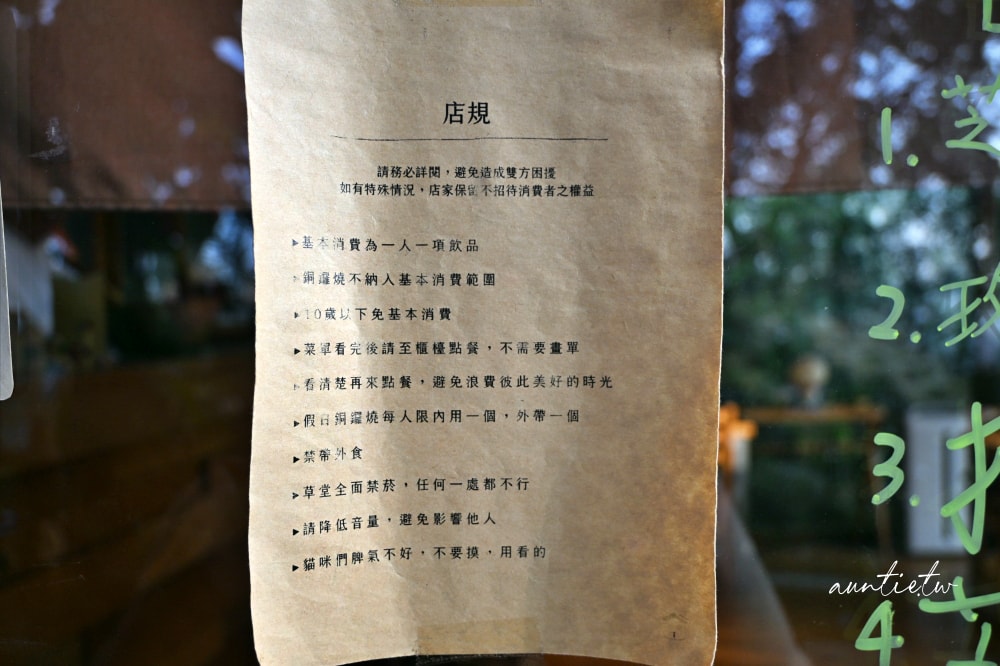 店規
請務必詳閱，避免造成雙方困擾
如有特殊情況，店家保留不招待消費者之權益
▸基本消費為一人一項飲品
▸銅鑼燒不納入基本消費範圍
▸10歲以下免基本消費
▸菜單看完後請至櫃檯點餐，不需要畫單
▸看清楚再來點餐，避免浪費彼此美好的時光
▸假日銅鑼燒每人限內用一個，外帶一個
▸禁帶外食
▸草堂全面禁菸，任何一處都不行
▸請降低音量，避免影響他人
▸貓咪們脾氣不好，不要摸，用看的
1
1. 芝
2. 玫
3.
4.
auntie.tw